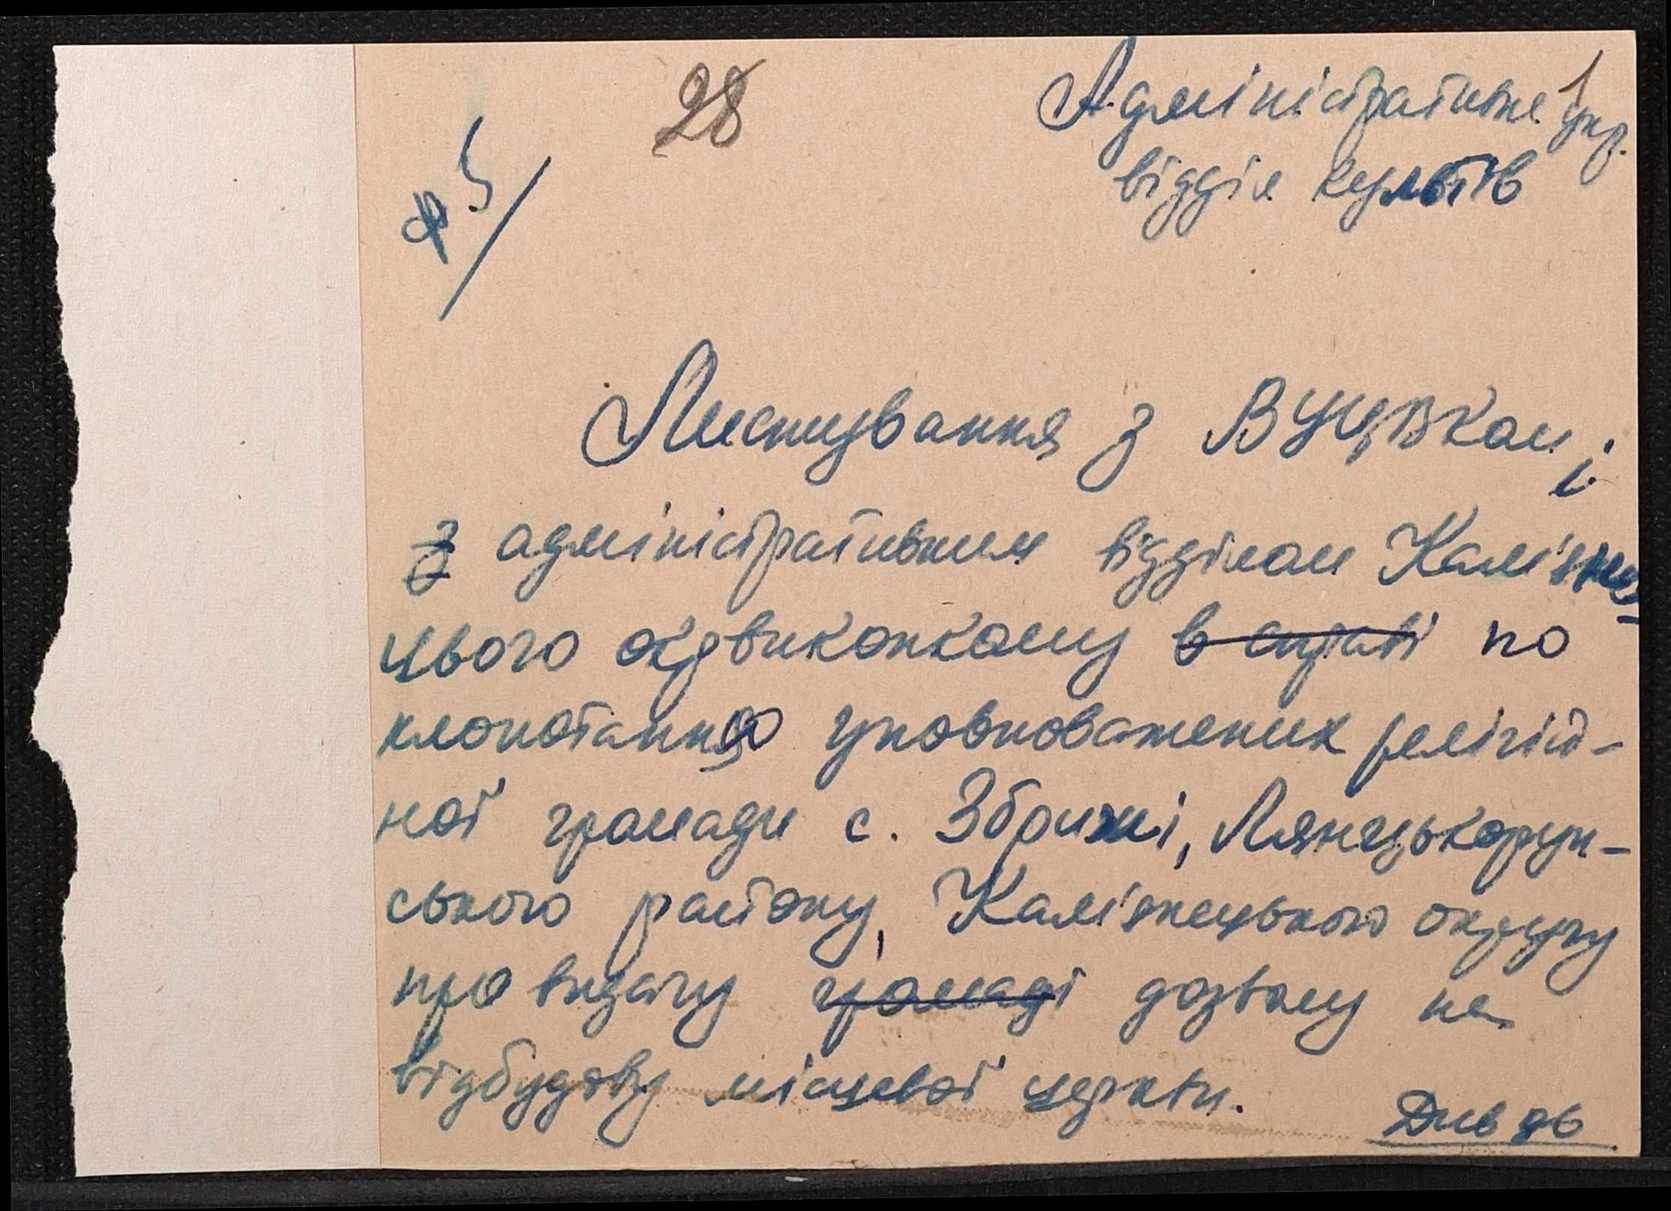 28
Адміністративне упр.
відділ культів
Листування з ВУЦВКом і
з адміністративним відділом Кам'янец-
цького окрвиконкому в справі по
клопотанню уповноважених релігій-
ної громади с. Збрижі, Лянцькорун-
ського району, Кам'янецького округу
про видачу громаді дозволу на
відбудову місцевої церкви.